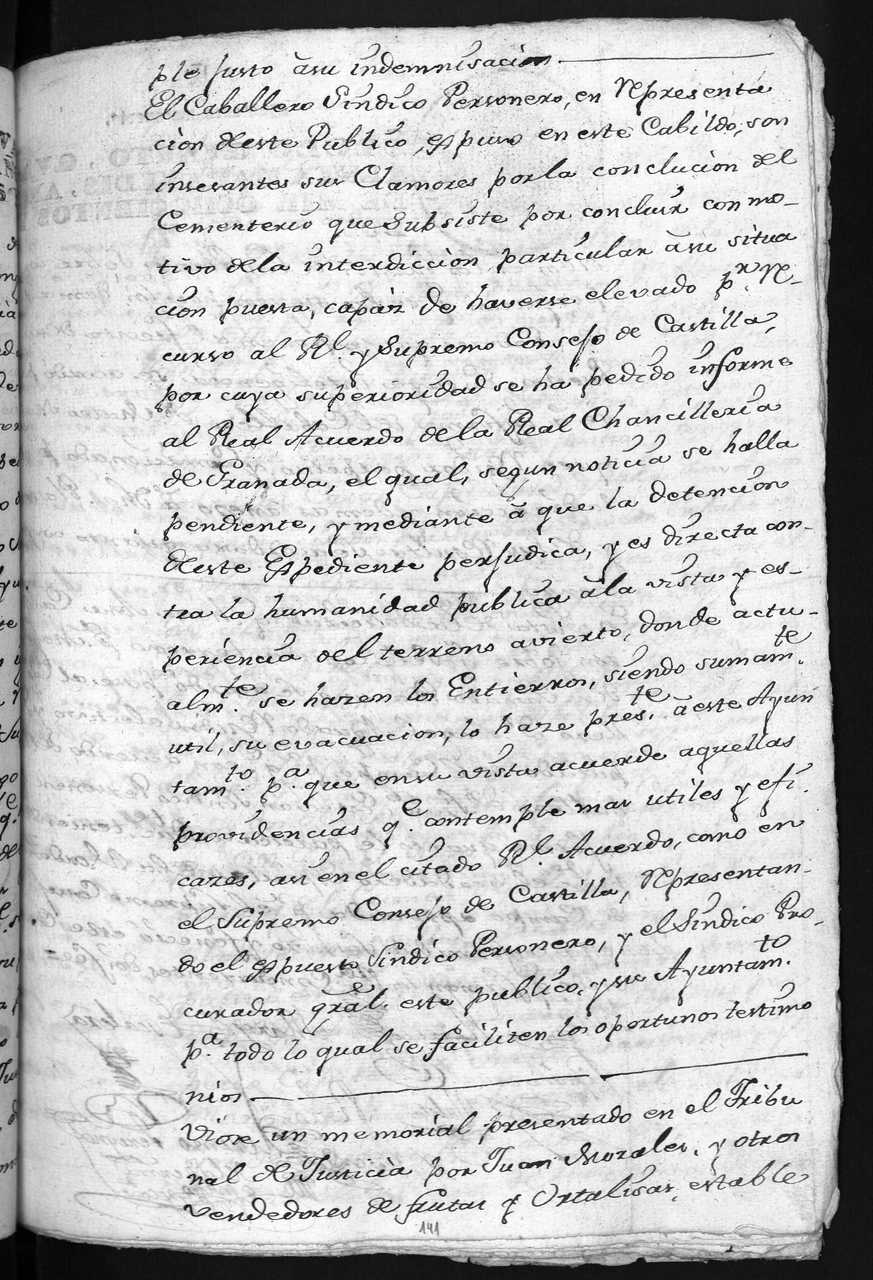 ple justo à su indemnisacion
El Caballero Sindico Personero, en Representa
cion deste Publico, espuso en este Cabildo, son
insesantes sus Clamores por la conclucion del
Cementerio que Subsiste por concluir con mo-
tivo dela interdiccion particular à su situa
cion puesta, capàz de haverse elevado pr. Re-
curso al Rl. y Supremo Consejo de Castilla,
por cuya superioridad se ha pedido informe
al Real Acuerdo de la Real Chancilleria
de Granada, el qual, segun noticia se halla
pendiente, y mediante à que la detencion
deste Espediente perjudica, y es directa con-
tra la humanidad publica à la vista y es-
periencia del terreno avierto, donde actu-
almte. se hazen los Entierros, siendo sumamte.
util, su evacuacion, lo haze preste. à este Ayun
tamto. pa. que en su vista acuerde aquellas
providencias qe. contemple mas utiles y efi-
cazes, asi en el citado Rl. Acuerdo, como en
el Supremo Consejo de Castilla, Representan-
do el espuesto Sindico Personero, y el Sindico Pro-
curador gral. este publico, y su Ayuntamto.
pa. todo lo qual se faciliten los oportunos testimo
nios
Viose un memorial presentado en el Tribu
nal de Justicia por Juan Morales, y otros
vendedores de frutas y Ortalisas, estable
141